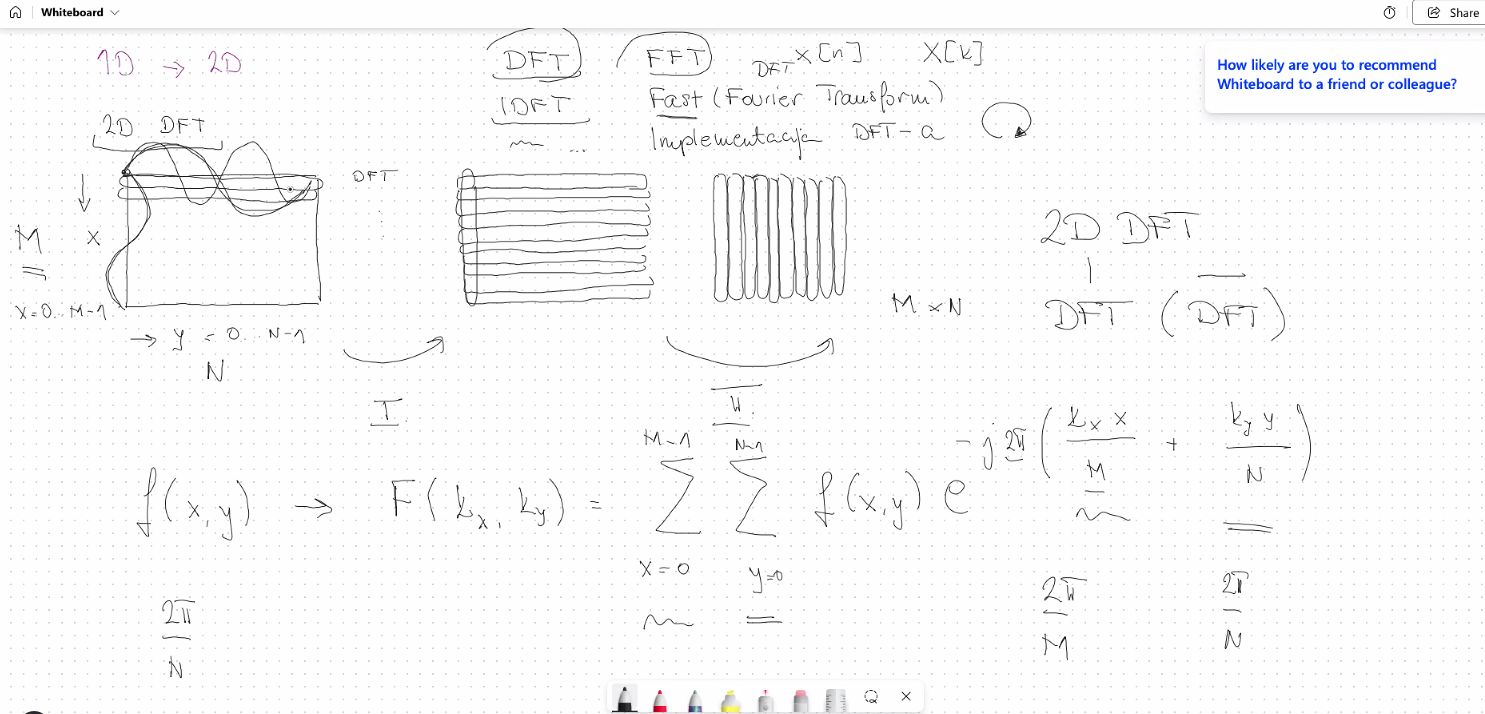 Whiteboard
Share
How likely are you to recommend
Whiteboard to a friend or colleague?
1D → 2D
DFT
FFT
DFT x[n] X[k]
IDFT
Fast (Fourier Transform)
...
Implementacija DFT-a
2D DFT
DFT
M
x
x=0...M-1
→ y = 0...N-1
N
M × N
2D DFT
DFT (DFT)
I
II
f(x,y) → F(kx, ky) = M-1 Σ x=0 N-1 Σ y=0 f(x,y) e -j2π (kx x / M + ky y / N)
2π
N
2π
M
2π
N